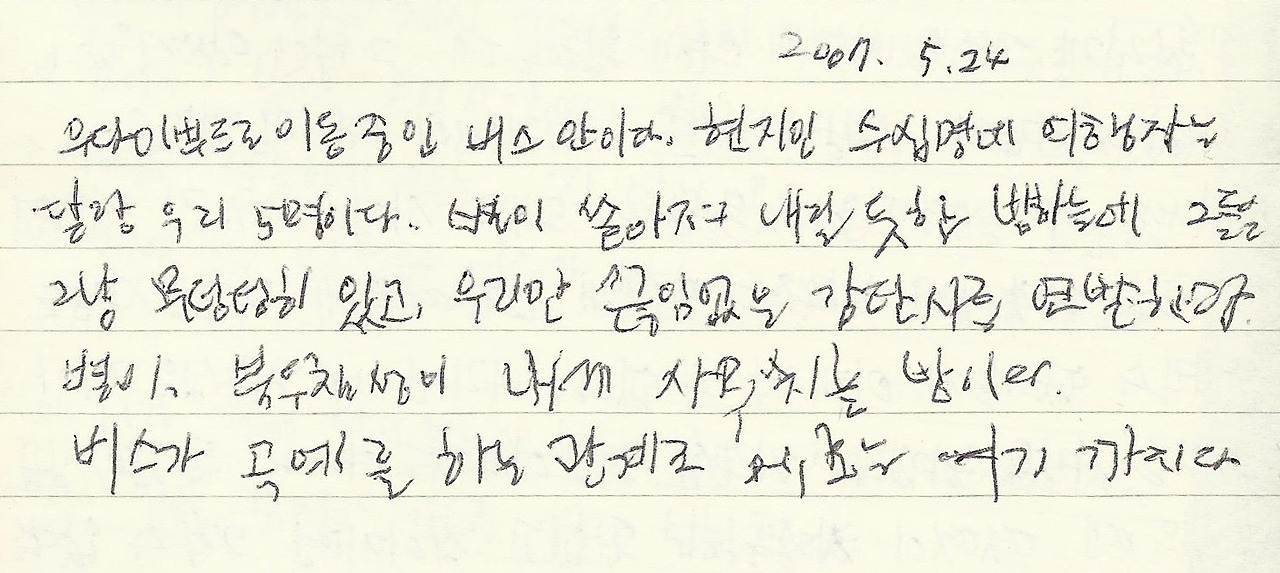 2007. 5.24
우다이뿌르로 이동 중인 버스 안이다. 현지인 수십명에 여행자는
달랑 우리 5명이다. 별이 쏟아져 내릴 듯한 밤하늘에 그들은
그냥 무덤덤히 있고, 우리만 끊임없는 감탄사를 연발한다.
별이, 북두칠성이 내게 사무치는 밤이다.
버스가 곡예를 하는 관계로 메모는 여기 까지다